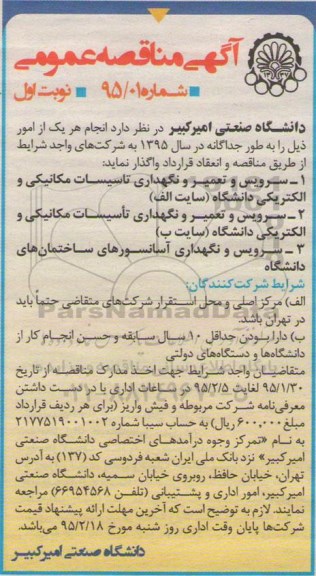 آگهی مناقصه عمومی
شماره ۹۵/۰۱ ■ نوبت اول
دانشگاه صنعتی امیرکبیر در نظر دارد انجام هر یک از امور
ذیل را به طور جداگانه در سال ۱۳۹۵ به شرکت‌های واجد شرایط
از طریق مناقصه و انعقاد قرارداد واگذار نماید:
۱ - سرویس و تعمیر و نگهداری تاسیسات مکانیکی و
الکتریکی دانشگاه (سایت الف)
۲ - سرویس و تعمیر و نگهداری تأسیسات مکانیکی و
الکتریکی دانشگاه (سایت ب)
۳ - سرویس و نگهداری آسانسورهای ساختمان‌های
دانشگاه
شرایط شرکت‌کنندگان:
الف) مرکز اصلی و محل استقرار شرکت‌های متقاضی حتماً باید
در تهران باشد.
ParsNamadData
ب) دارا بودن حداقل ۱۰ سال سابقه و حسن انجام کار از
دانشگاه‌ها و دستگاه‌های دولتی
متقاضیان واجد شرایط جهت اخذ مدارک مناقصه از تاریخ
۹۵/۱/۳۰ لغایت ۹۵/۲/۵ در ساعات اداری با در دست داشتن
معرفی‌نامه شرکت مربوطه و فیش واریز (برای هر ردیف قرارداد
مبلغ ۶۰۰,۰۰۰ ریال) به حساب سیبا شماره ۲۱۷۷۵۱۹۰۰۱۰۰۲
به نام «تمرکز وجوه درآمدهای اختصاصی دانشگاه صنعتی
امیرکبیر» نزد بانک ملی ایران شعبه فردوسی کد (۱۳۷) به آدرس
تهران، خیابان حافظ، روبروی خیابان سمیه، دانشگاه صنعتی
امیرکبیر، امور اداری و پشتیبانی (تلفن ۶۶۹۵۴۵۶۸) مراجعه
نمایند. لازم به توضیح است که آخرین مهلت ارائه پیشنهاد قیمت
شرکت‌ها پایان وقت اداری روز شنبه مورخ ۹۵/۲/۱۸ می‌باشد.
دانشگاه صنعتی امیرکبیر